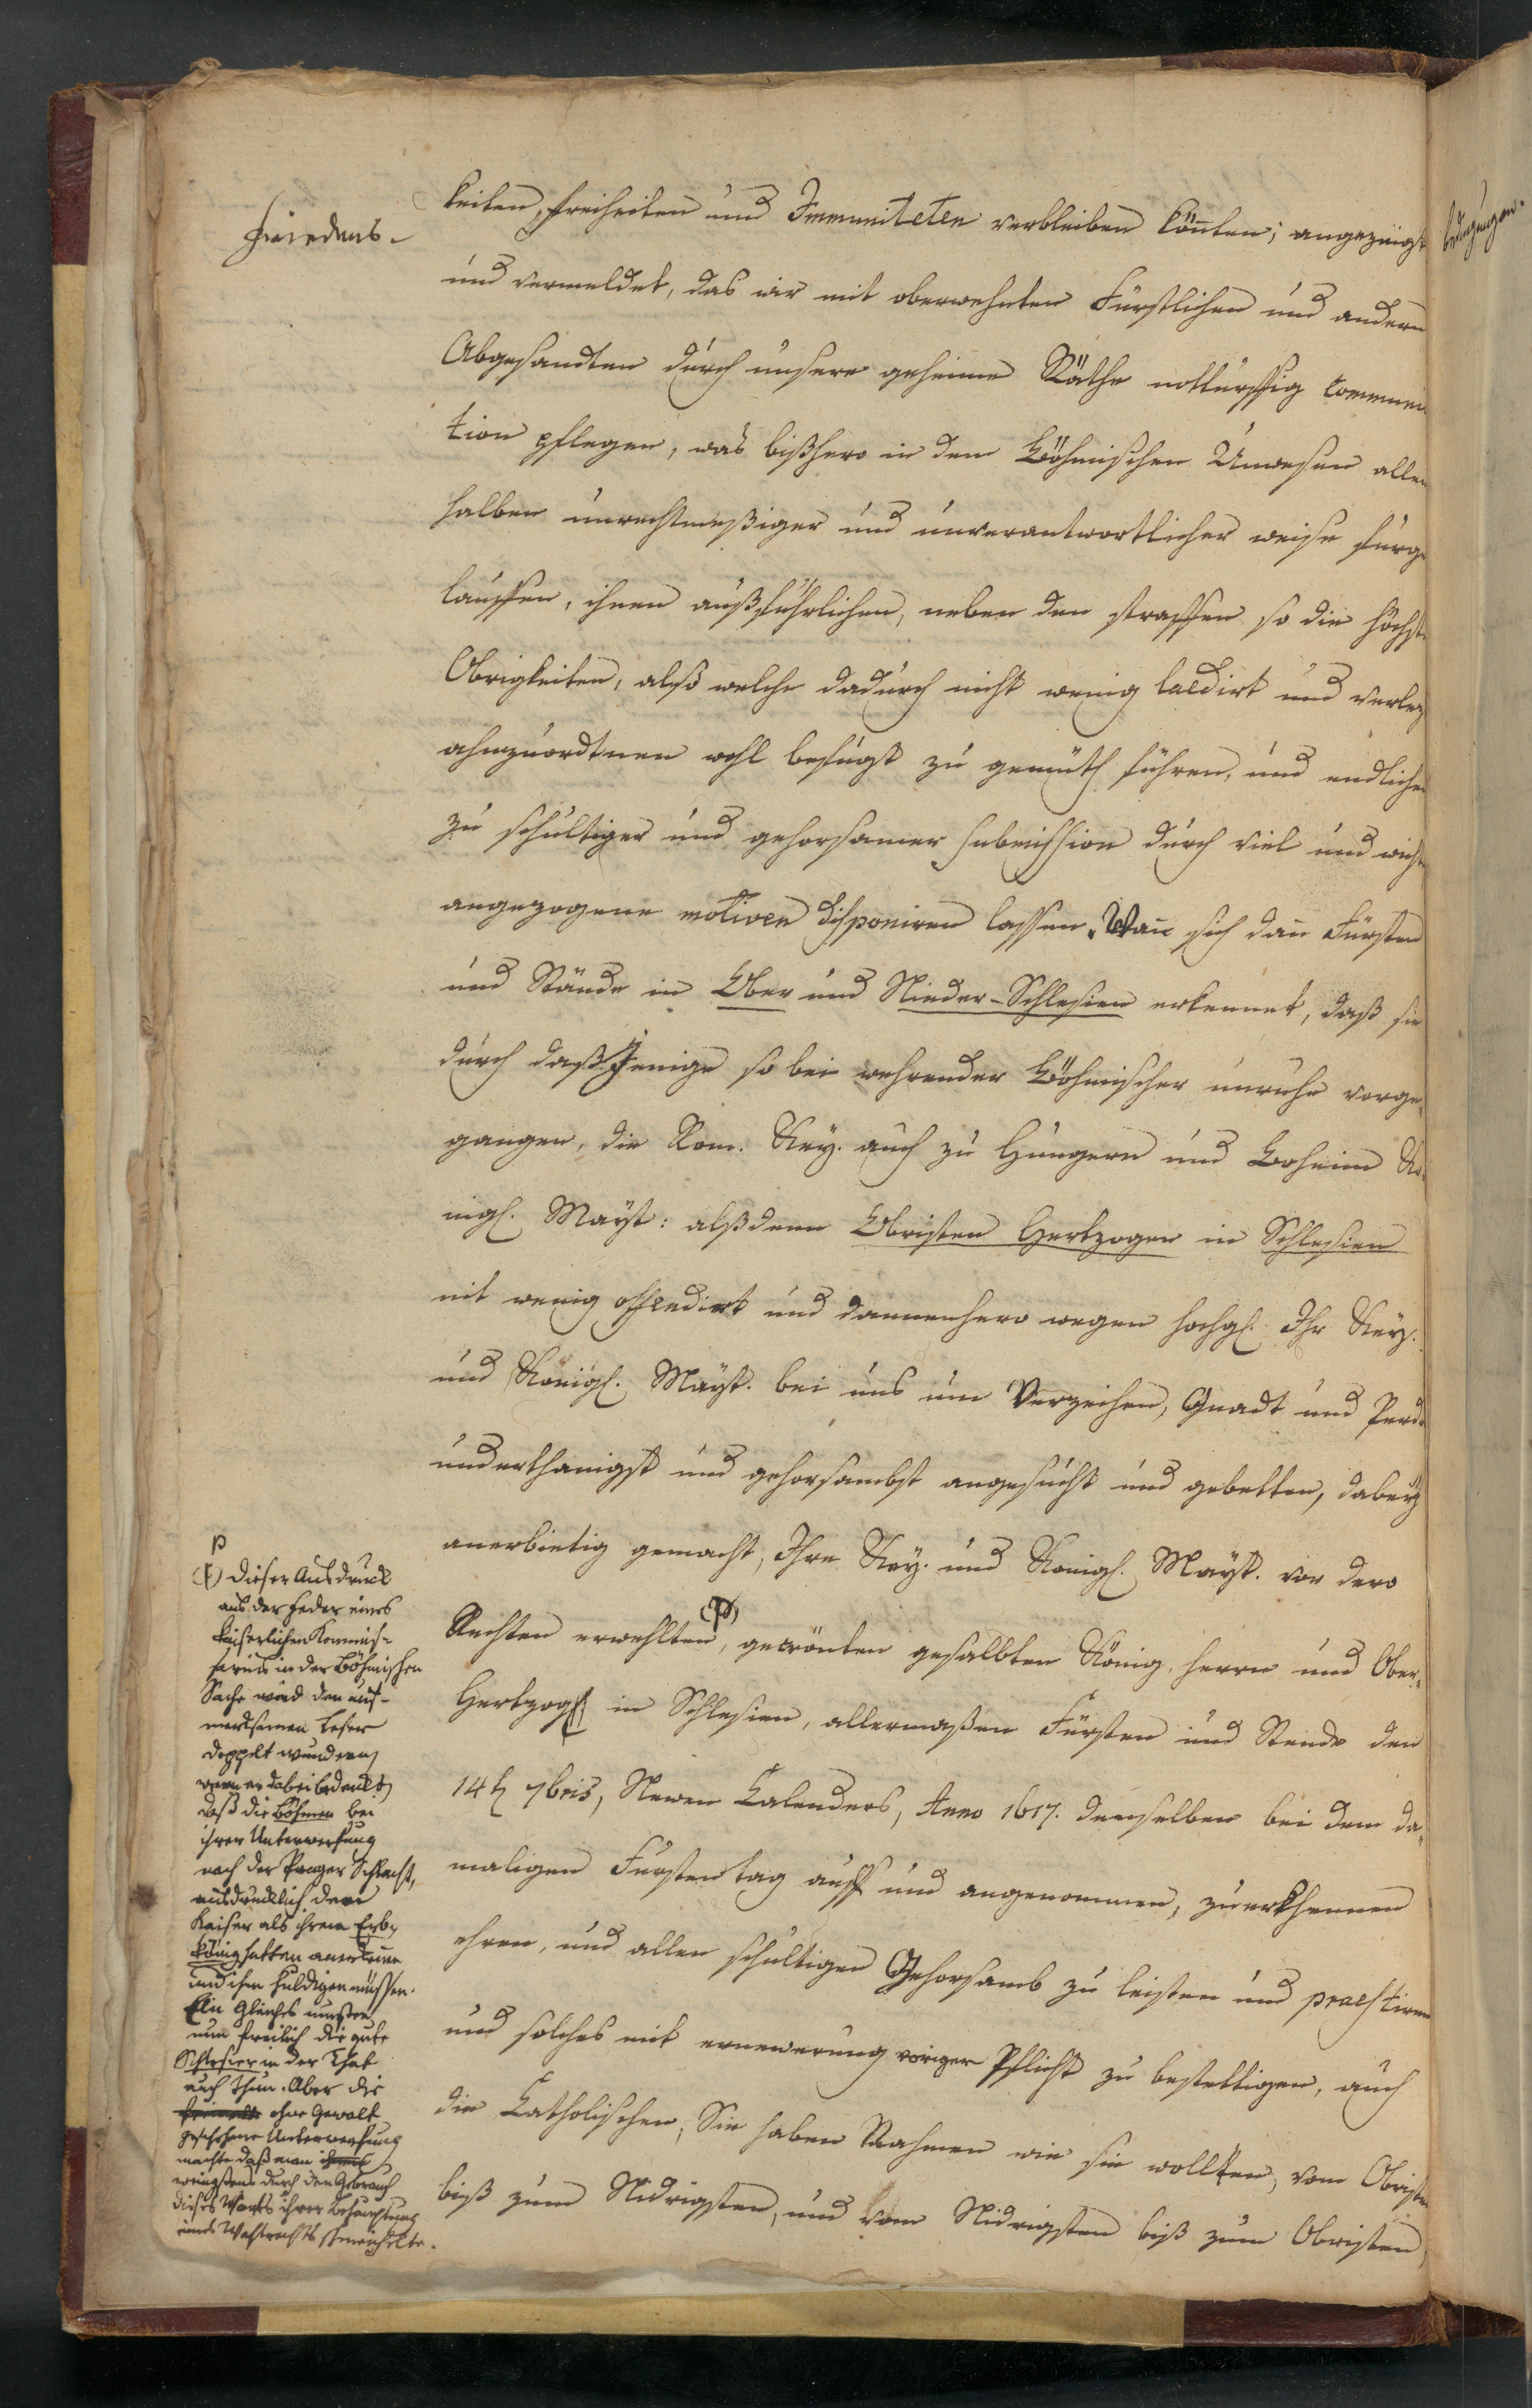 Friedens-
keiten, Freiheiten und Immuniteten verbleiben könten; angezeigt
und vermeldet, das wir mit oberwehnten Fürstlichen und andern
Abgesandten durch unsere geheime Räthe notturfftig Communi
tion pflegen, was bißhero in dem Böhmischen Unwesen allen
halben unrechtmeßiger und unverantwortlicher weise fürge
lauffen, ihnen außführlichen, neben den straffen so die höchste
Obrigkeiten, alß welche dadurch nicht wenig laedirt und verlez
ahnzuordtnen wohl befugt zu gemüth führen, und endlichen
zu schultiger und gehorsamer submission durch viel und
angezogene motiven disponiren lassen. Wan sich dan Fürsten
und Stände in Ober und Nieder-Schlesien erkennet, daß sie
durch daß Jenige so bei wehrender Böhmischer unruhe vorge-
gangen, die Rom. Key. auch zu Hungern und Boheim Kö-
nigl. Mayst: alß denn Obristen Hertzogen in Schlesien
nit wenig offendirt und dannenhero wegen hochgl. Ihr Key.
und Königl. Mayst. bei uns um Verzeihen, Gnadt und Perdo
underthanigst und gehorsambst angesucht und gebetten, dabey
anerbietig gemacht, Ihre Key. und Königl. Mayst. vor dero
Rechten erwehlten (P), gecrönten gesalbten König, herrn und Ober-
Hertzog in Schlesien, allermaßen Fürsten und Stende den
14t 7bris, Newen Calenders, Anno 1617. demselben bei dem da-
maligen Fürstentag auff und angenommen, zuerkhennen
ehren, und allen schultigen Gehorsamb zu leisten und praestiren
und solches mit ernewerung voriger Pflicht zu bestettigen, auch
die Catholischen, Sie haben Nahmen wie sie wollten, vom Obristen
biß zum Nidrigsten, und vom Nidrigsten biß zum Obristen,
p
(P) Dieser Ausdruck
aus der Feder eines
kaiserlichen Kommis-
sarius in der Böhmischen
Sache wird den auf-
merksamen Leser
doppelt wundern,
wenn er dabei bedenkt,
daß die Böhmen bei
ihrer Unterwerfung
nach der Prager Schlacht,
ausdrücklich dem
Kaiser als ihrem Erb-
könig hatten anerkennen
und ihm huldigen müssen.
Ein Gleiches mußten
nun freilich die gute
Schlesier in der That
auch thun. Aber die
ohne Gewalt
geschehene Unterwerfung
machte daß man
wenigstens durch den Gebrauch
dieses Worts ihrer Behauptung
eines Wahlrechts schmeichelte.
bedingungen.